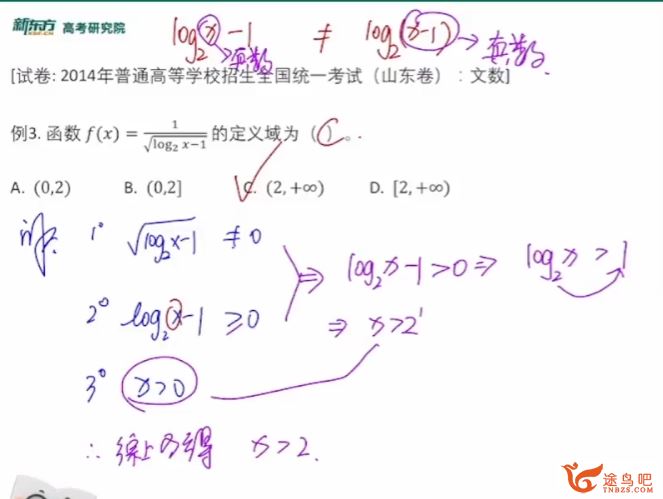 新东方 高考研究院
XDF.CN
log₂x - 1 ≠ log₂(x-1) → 真数.
→ 真数
[试卷: 2014年普通高等学校招生全国统一考试（山东卷）：文数]
例3. 函数 f(x) = 1/√(log₂ x−1) 的定义域为（ C ）。
A. (0,2) B. (0,2] C. (2,+∞) D. [2,+∞)
解: 1° √(log₂x-1) ≠ 0
⇒ log₂x-1>0 ⇒ log₂x > 1
2° log₂x-1 ≥ 0
⇒ x>2¹
3° x>0
∴ 综上可得 x>2.
途鸟吧
TNBZS.COM